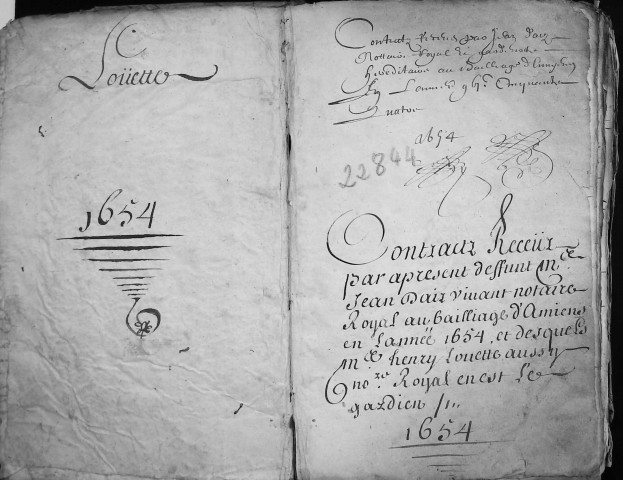 Loüette
1654
Contractz receus par Jean Dair
Nottaire Royal et gardenotte
hereditaire au Bailliage d'Amiens
En l'annee 1650 Cinquante
Quatre
1654
22844
Contractz Receuz
par apresent deffunt Me.
Jean Dair vivant notaire
Royal au bailliage d'Amiens
en l'année 1654, et desquels
me. henry Louette aussy
nore. Royal en est le
gardien /.
1654